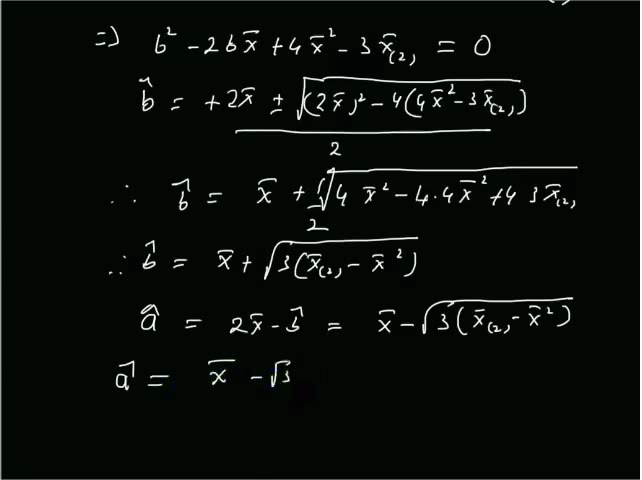 => b² - 2b x̄ + 4x̄² - 3x̄₍₂₎ = 0
b̂ = +2x̄ ± √((2x̄)² - 4(4x̄² - 3x̄₍₂₎)) / 2
∴ b̂ = x̄ + 1/2 √(4 x̄² - 4·4x̄² + 4 3x̄₍₂₎)
∴ b̂ = x̄ + √(3(x̄₍₂₎ - x̄²))
â = 2x̄ - b̂ = x̄ - √(3(x̄₍₂₎ - x̄²))
â = x̄ - √3